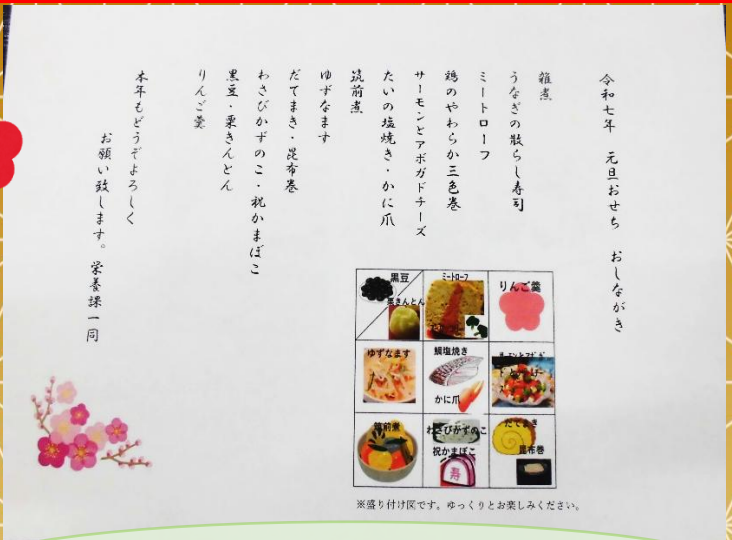 令和七年　元旦おせち　おしながき
雑煮
うなぎの散らし寿司
ミートローフ
鶏のやわらか三色巻
サーモンとアボガドチーズ
たいの塩焼き・かに爪
筑前煮
ゆずなます
だてまき・昆布巻
わさびかずのこ・祝かまぼこ
黒豆・栗きんとん
りんご羹
本年もどうぞよろしく
お願い致します。栄養課一同
黒豆
栗きんとん
ミートローフ
りんご羹
ゆずなます
鯛塩焼き
かに爪
筑前煮
わさびかずのこ
祝かまぼこ
寿
だてまき
昆布巻
※盛り付け図です。ゆっくりとお楽しみください。